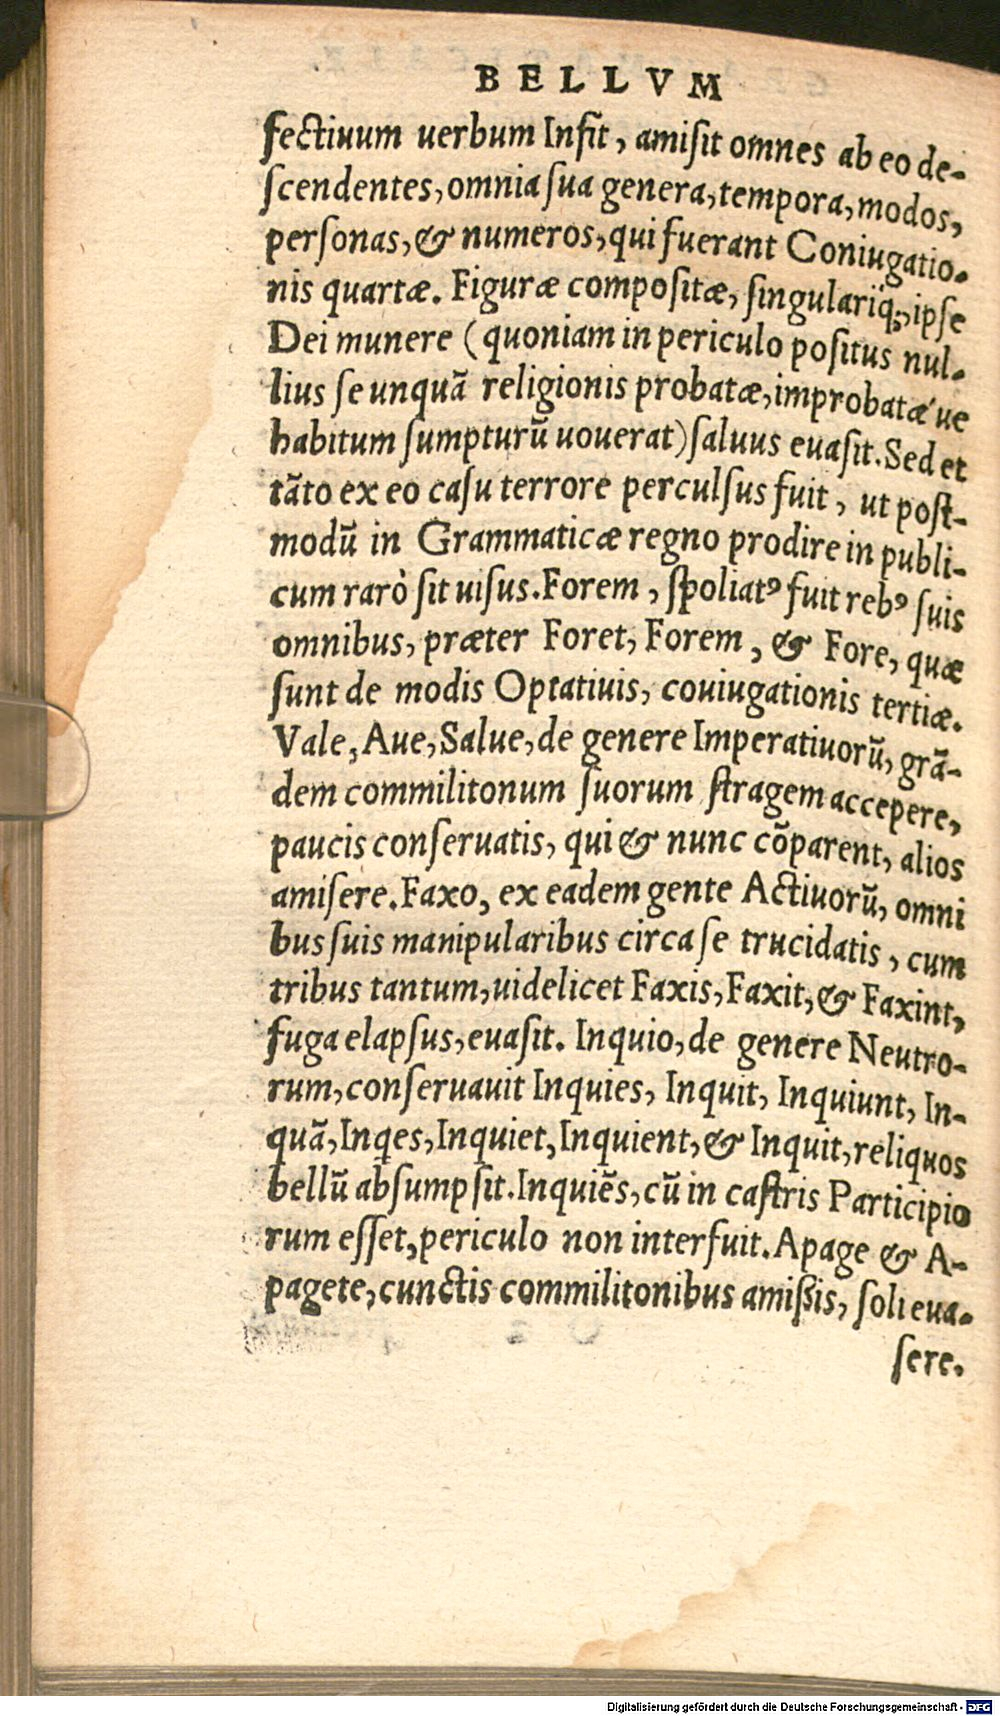 BELLVM
fectiuum uerbum Infit, amiſit omnes ab eo de-
ſcendentes, omnia ſua genera, tempora, modos,
perſonas, & numeros, qui fuerant Coniugatio-
nis quartæ. Figuræ compoſitæ, ſingulariq́;, ipſe
Dei munere (quoniam in periculo poſitus nul-
lius ſe unquã religionis probatæ, improbatæ'ue
habitum ſumpturũ uouerat) ſaluus euaſit. Sed et
tãto ex eo caſu terrore perculſus fuit, ut poſt-
modũ in Grammaticæ regno prodire in publi-
cum rarò ſit uiſus. Forem, ſpoliatꝰ fuit rebꝰ ſuis
omnibus, præter Foret, Forem, & Fore, quæ
ſunt de modis Optatiuis, couiugationis tertiæ.
Vale, Aue, Salue, de genere Imperatiuorũ, grã-
dem commilitonum ſuorum ſtragem accepere,
paucis conſeruatis, qui & nunc cõparent, alios
amiſere. Faxo, ex eadem gente Actiuorũ, omni
bus ſuis manipularibus circa ſe trucidatis, cum
tribus tantum, uidelicet Faxis, Faxit, & Faxint,
fuga elapſus, euaſit. Inquio, de genere Neutro-
rum, conſeruauit Inquies, Inquit, Inquiunt, In-
quã, Inqes, Inquiet, Inquient, & Inquit, reliquos
bellũ abſumpſit. Inquiẽs, cũ in caſtris Participio
rum eſſet, periculo non interfuit. Apage & A-
pagete, cunctis commilitonibus amiſsis, ſoli eua-
ſere.
Digitalisierung gefördert durch die Deutsche Forschungsgemeinschaft - DFG